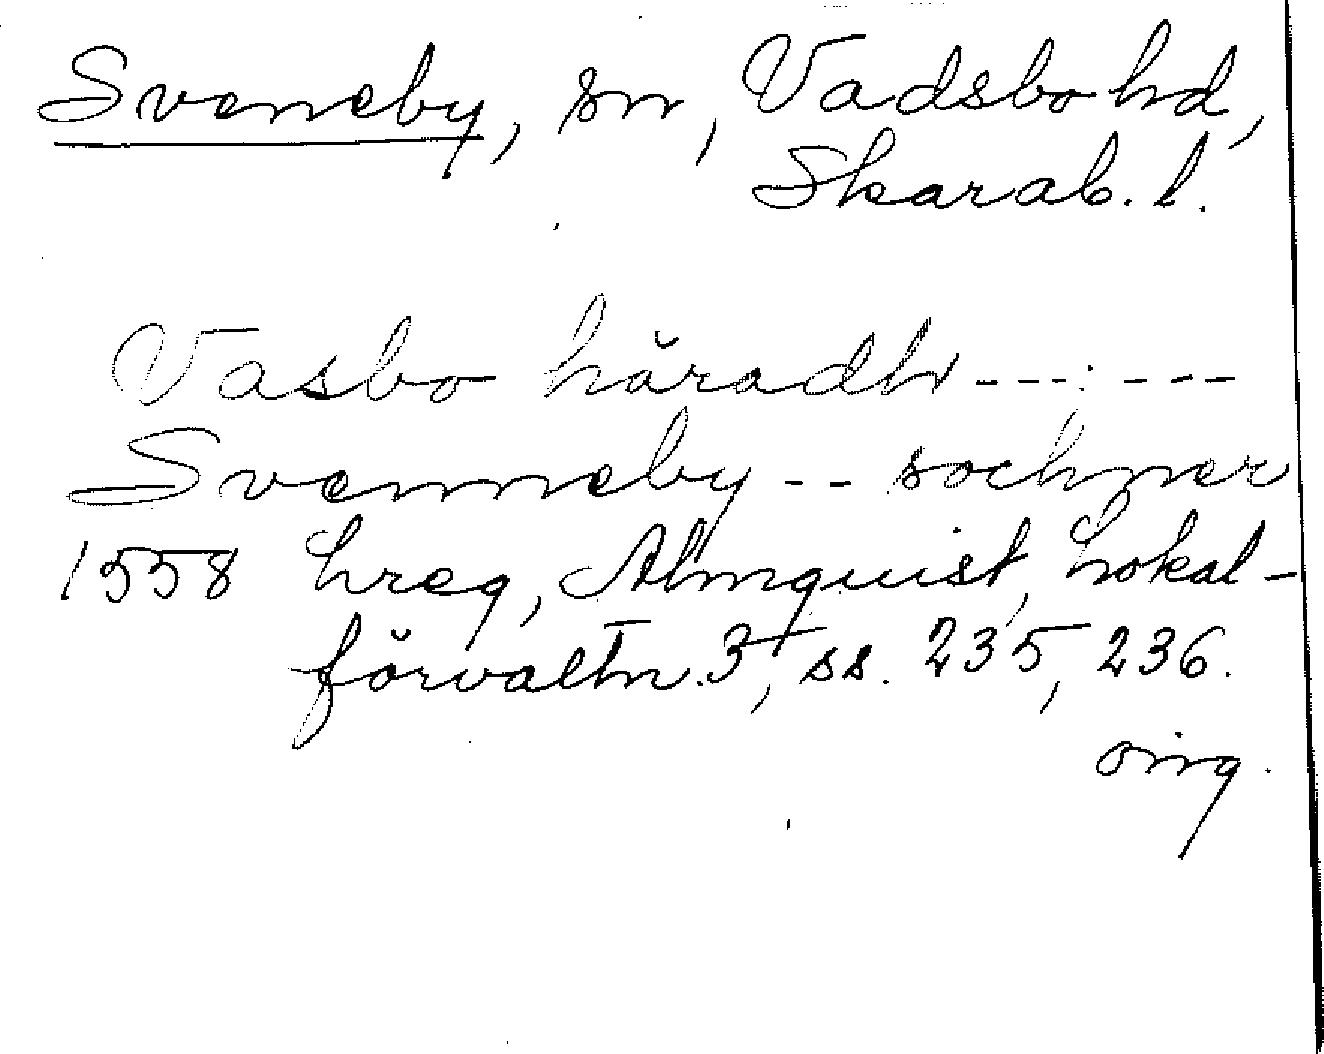 Sveneby, sn, Vadsbo hd,
Skarab. l.
Vasbo häradh --- ---
Svenneby -- sochner
1558 Lreg, Almquist, Lokal-
förvaltn. 3, ss. 235, 236.
orig.